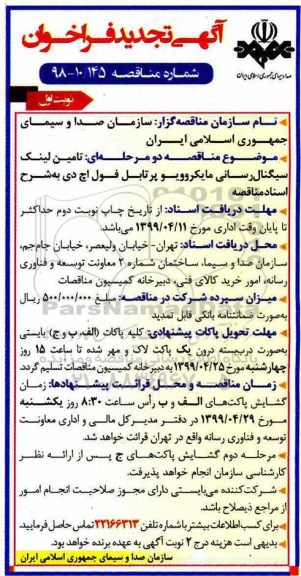 آگهی تجدید فراخوان
صدا و سیمای جمهوری اسلامی ایران
شماره مناقصه ۹۸-۱۰/۱۴۵
نوبت اول
نام سازمان مناقصه‌گزار: سازمان صدا و سیمای
جمهوری اسلامی ایران
موضوع مناقصه دو مرحله‌ای: تامین لینک
سیگنال‌رسانی مایکروویو پرتابل فول اچ دی به‌شرح
اسناد مناقصه
مهلت دریافت اسناد: از تاریخ چاپ نوبت دوم حداکثر
تا پایان وقت اداری مورخ ۱۳۹۹/۰۴/۱۱ می‌باشد.
محل دریافت اسناد: تهران - خیابان ولیعصر، خیابان جام‌جم،
سازمان صدا و سیما، ساختمان شماره ۲ معاونت توسعه و فناوری
رسانه، امور خرید کالای فنی، دبیرخانه کمیسیون مناقصات
میزان سپرده شرکت در مناقصه: مبلغ ۵۰۰/۰۰۰/۰۰۰ ریال
به‌صورت ضمانتنامه بانکی قابل تمدید
مهلت تحویل پاکات پیشنهادی: کلیه پاکات (الف، ب و ج) بایستی
به‌صورت دربسته درون یک پاکت لاک و مهر شده تا ساعت ۱۵ روز
چهارشنبه مورخ ۱۳۹۹/۰۴/۲۵ به دبیرخانه کمیسیون مناقصات تسلیم گردد.
زمان مناقصه و محل قرائت پیشنهادها: زمان
گشایش پاکت‌های الف و ب رأس ساعت ۸:۳۰ روز یکشنبه
مورخ ۱۳۹۹/۰۴/۲۹ در دفتر مدیرکل مالی و اداری معاونت
توسعه و فناوری رسانه واقع در تهران قرائت خواهد شد.
مرحله دوم گشایش پاکت‌های ج پس از ارائه نظر
کارشناسی سازمان انجام خواهد پذیرفت.
شرکت‌کننده می‌بایستی دارای مجوز صلاحیت انجام امور
از مراجع ذیصلاح باشد.
برای کسب اطلاعات بیشتر با شماره تلفن ۲۲۱۶۶۳۱۳ تماس حاصل فرمایید.
بدیهی است هزینه درج ۲ نوبت آگهی به عهده برنده خواهد بود.
سازمان صدا و سیمای جمهوری اسلامی ایران